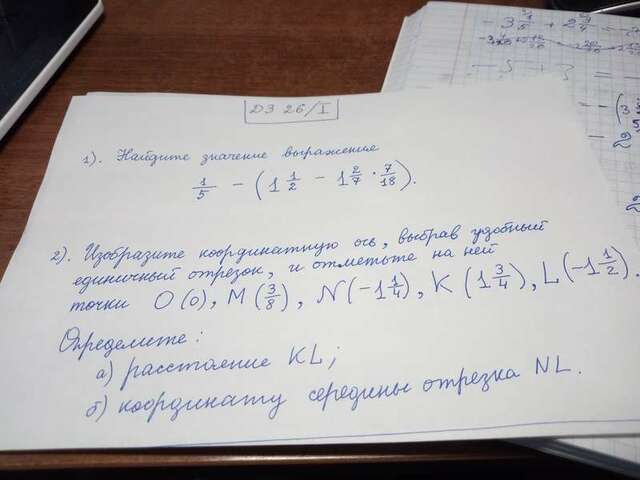 ДЗ 26/I
1). Найдите значение выражение
1/5 - (1 1/2 - 1 2/7 · 7/18).
2). Изобразите координатную ось, выбрав удобный
единичный отрезок, и отметьте на ней
точки O(0), M(3/8), N(-1 1/4), K(1 3/4), L(-1 1/2).
Определите:
а) расстояние KL;
б) координату середины отрезка NL.